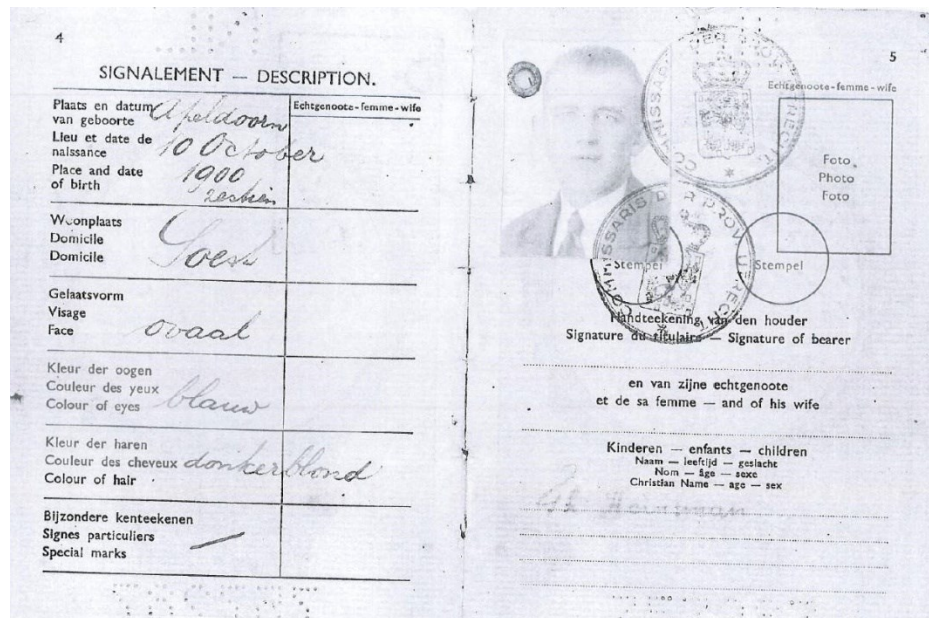 4
SIGNALEMENT — DESCRIPTION.
Plaats en datum
van geboorte
Lieu et date de
naissance
Place and date
of birth
Apeldoorn
10 October
1900
zestien
Echtgenoote - femme - wife
Woonplaats
Domicile
Domicile
Soest
Gelaatsvorm
Visage
Face
ovaal
Kleur der oogen
Couleur des yeux
Colour of eyes
blauw
Kleur der haren
Couleur des cheveux
Colour of hair
donkerblond
Bijzondere kenteekenen
Signes particuliers
Special marks
—
5
Echtgenoote - femme - wife
COMMISSARIS DER PROV. UTRECHT
Foto
Photo
Foto
COMMISSARIS DER PROV. UTRECHT
Stempel
Stempel
Handteekening van den houder
Signature du titulaire — Signature of bearer
en van zijne echtgenoote
et de sa femme — and of his wife
Kinderen — enfants — children
Naam — leeftijd — geslacht
Nom — âge — sexe
Christian Name — age — sex